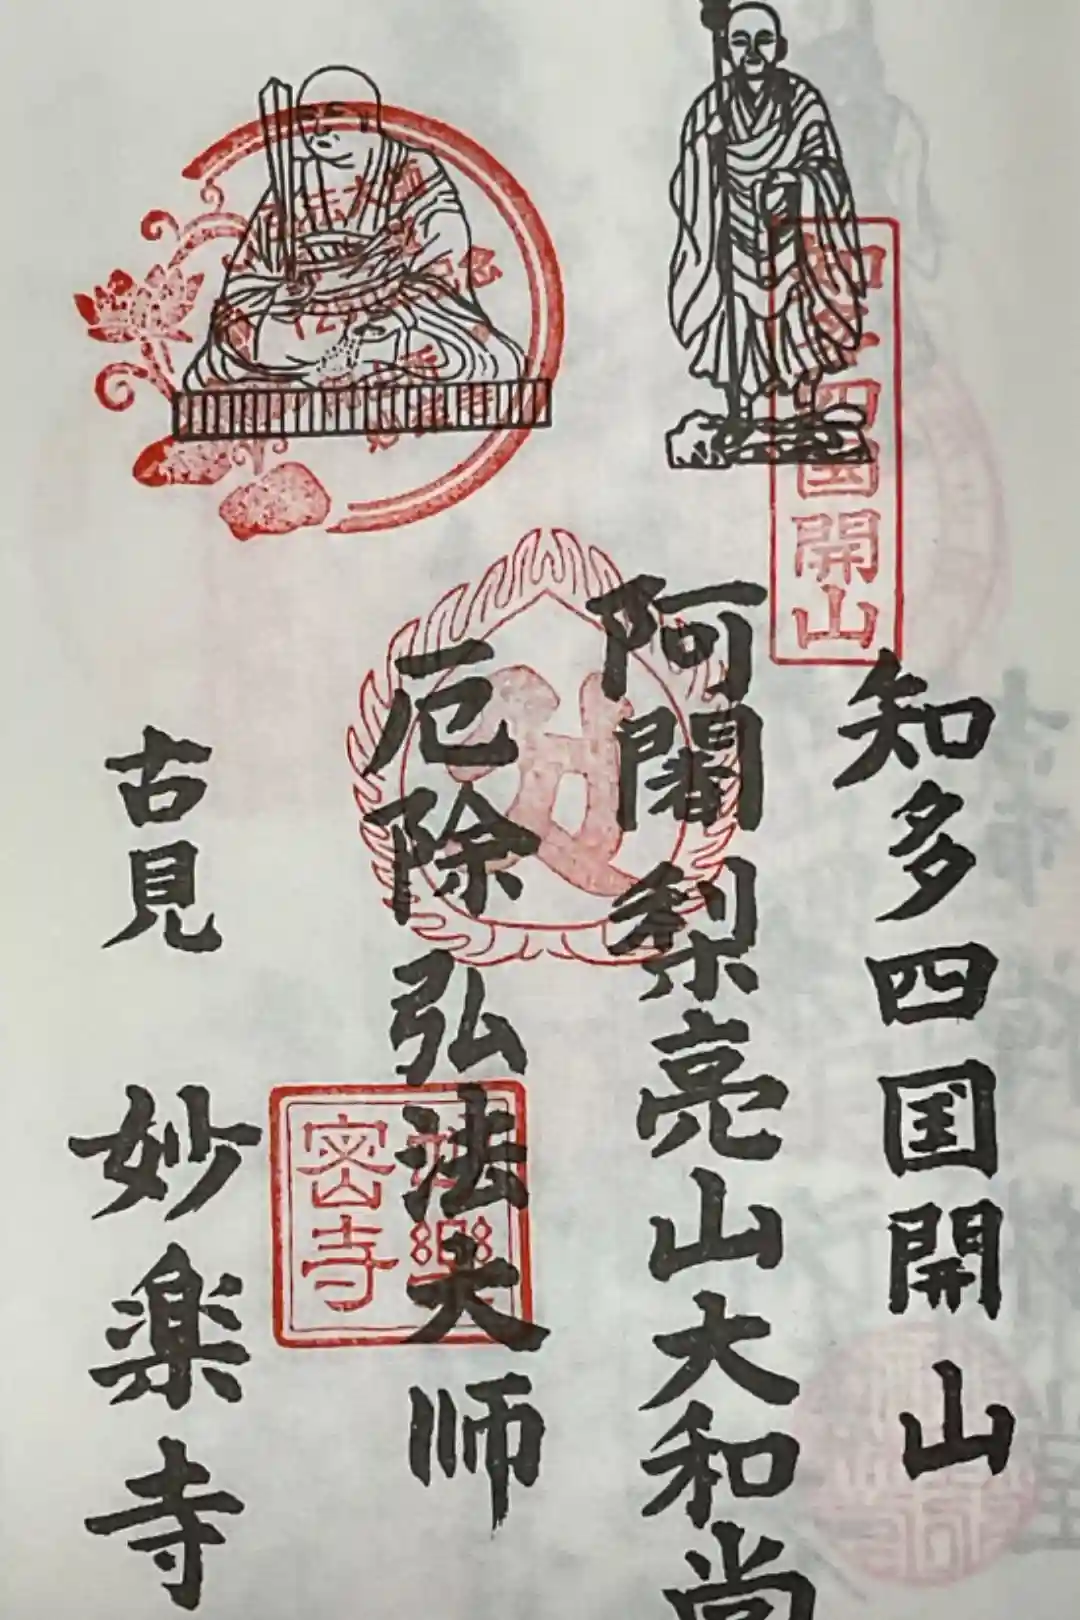 知多四国開山
阿闍梨亮山大和尚
厄除弘法大師
古見 妙楽寺
知多四国開山
妙樂
密寺